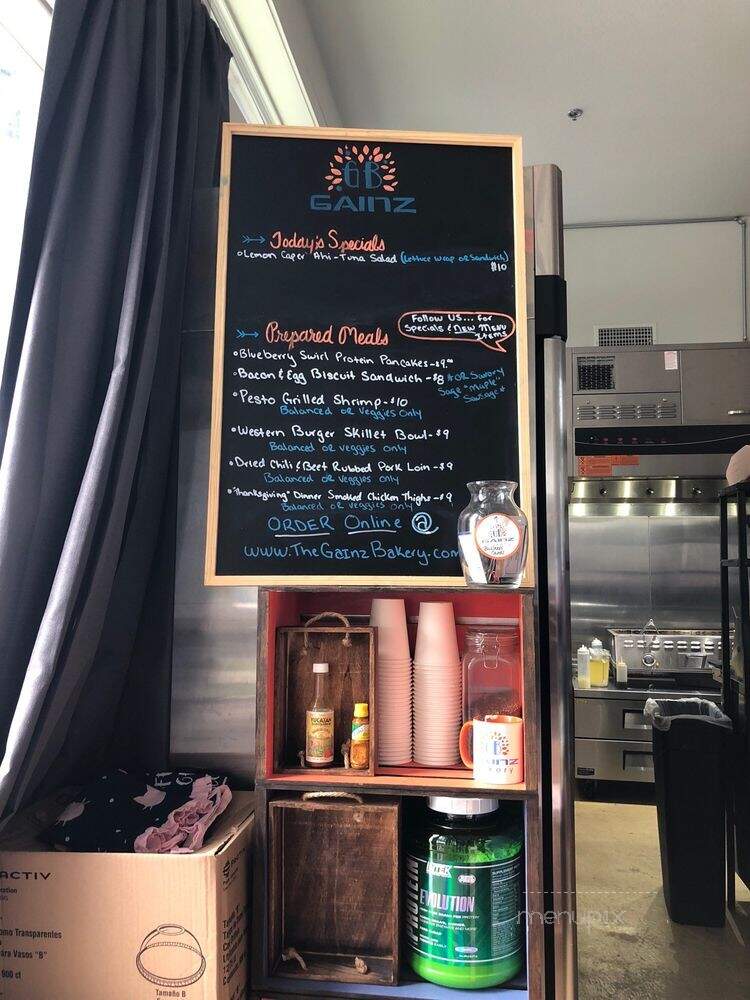 GB
GAINZ
Today's Specials
Lemon Caper Ahi-Tuna Salad (Lettuce wrap or Sandwich)
$10
Follow US... for
Specials & New Menu
Items
Prepared Meals
Blueberry Swirl Protein Pancakes - $9.00
Bacon & Egg Biscuit Sandwich - $8 *OR Savory
Sage "Maple"
Sausage*
Pesto Grilled Shrimp - $10
Balanced or Veggies Only
Western Burger Skillet Bowl - $9
Balanced or veggies only
Dried Chili & Beet Rubbed Pork Loin - $9
Balanced or veggies only
"Thanksgiving" Dinner Smoked Chicken Thighs - $9
Balanced or veggies only
ORDER Online @
www.TheGainzBakery.com
GAINZ
YUCATAN
GB
GAINZ
EVOLUTION
ACTIV
Transparentes
Vasos "B"
900 ct
Tamaño B
menupix